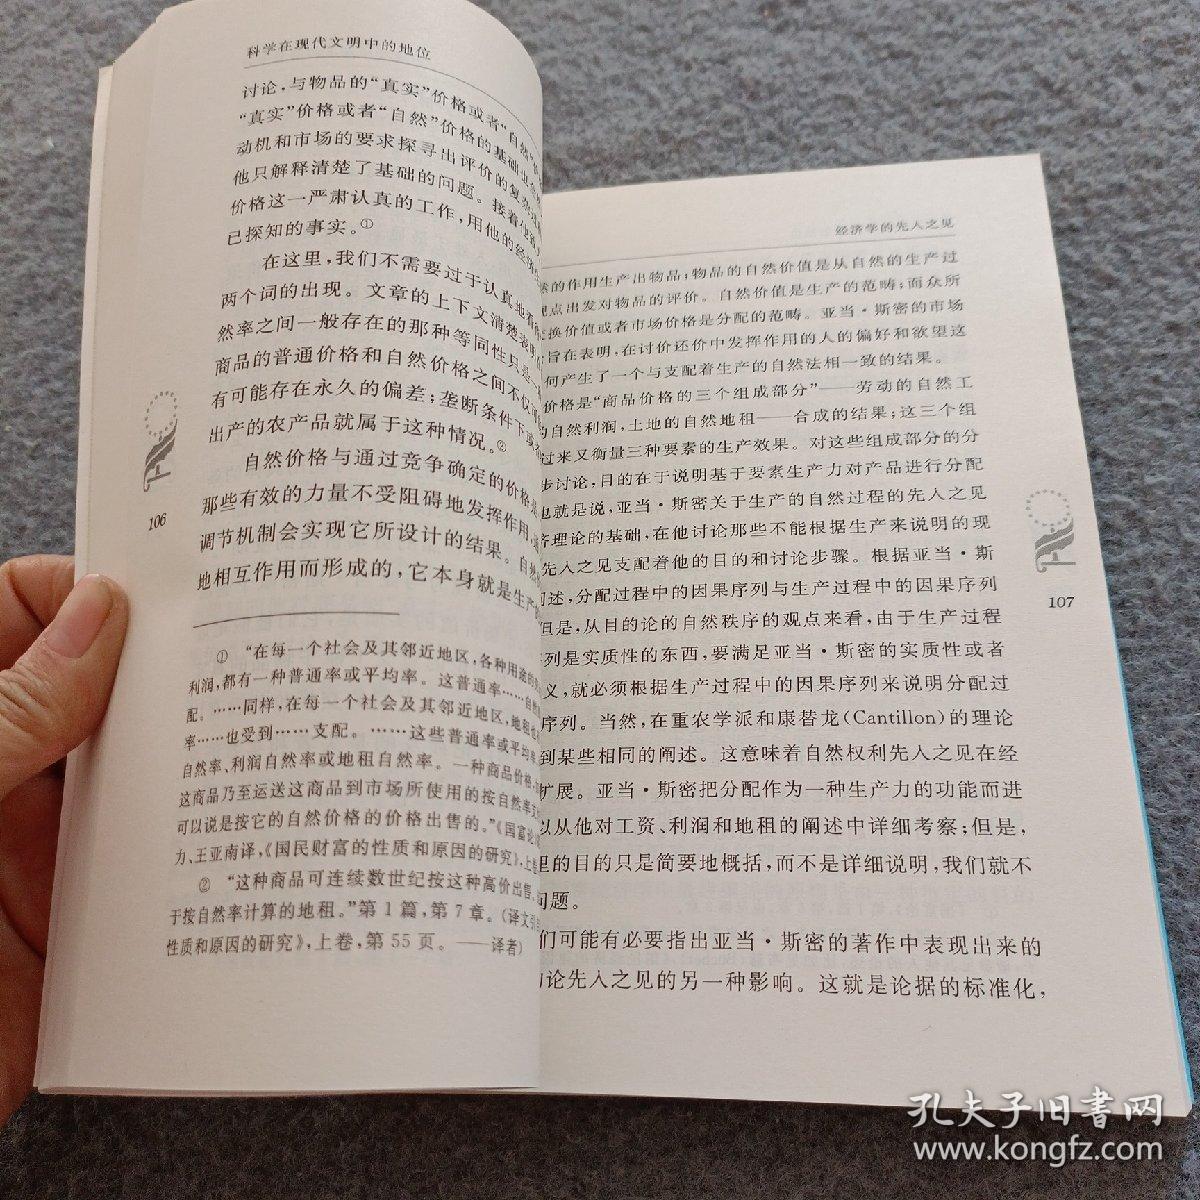 科学在现代文明中的地位
讨论，与物品的“真实”价格或者“自然”
“真实”价格或者“自然”价格的基础
动机和市场的要求探寻出评价的复杂
他只解释清楚了基础的问题。接着
价格这一严肃认真的工作，用他的经
已探知的事实。①
在这里，我们不需要过于认真地看
两个词的出现。文章的上下文清楚表明
然率之间一般存在的那种等同性只是
商品的普通价格和自然价格之间不仅
有可能存在永久的偏差；垄断条件下
出产的农产品就属于这种情况。②
自然价格与通过竞争确定的价格
那些有效的力量不受阻碍地发挥作用，
调节机制会实现它所设计的结果。自然
地相互作用而形成的，它本身就是生产
106
① “在每一个社会及其邻近地区，各种用途的
利润，都有一种普通率或平均率。这普通率……自然
配。……同样，在每一个社会及其邻近地区，地租
率……也受到……支配。……这些普通率或平均率
自然率、利润自然率或地租自然率。一种商品价格
这商品乃至运送这商品到市场所使用的按自然率支
可以说是按它的自然价格的价格出售的。”《国富论
力、王亚南译，《国民财富的性质和原因的研究》，上卷
② “这种商品可连续数世纪按这种高价出售
于按自然率计算的地租。”第1篇，第7章。（译文引
性质和原因的研究》，上卷，第55页。——译者）
经济学的先入之见
然的作用生产出物品；物品的自然价值是从自然的生产过
观点出发对物品的评价。自然价值是生产的范畴；而众所
换价值或者市场价格是分配的范畴。亚当·斯密的市场
旨在表明，在讨价还价中发挥作用的人的偏好和欲望这
何产生了一个与支配着生产的自然法相一致的结果。
价格是“商品价格的三个组成部分”——劳动的自然工
的自然利润，土地的自然地租——合成的结果；这三个组
过来又衡量三种要素的生产效果。对这些组成部分的分
步讨论，目的在于说明基于要素生产力对产品进行分配
也就是说，亚当·斯密关于生产的自然过程的先入之见
济理论的基础，在他讨论那些不能根据生产来说明的现
先入之见支配着他的目的和讨论步骤。根据亚当·斯
述，分配过程中的因果序列与生产过程中的因果序列
但是，从目的论的自然秩序的观点来看，由于生产过程
列是实质性的东西，要满足亚当·斯密的实质性或者
义，就必须根据生产过程中的因果序列来说明分配过
序列。当然，在重农学派和康替龙（Cantillon）的理论
到某些相同的阐述。这意味着自然权利先入之见在经
扩展。亚当·斯密把分配作为一种生产力的功能而进
以从他对工资、利润和地租的阐述中详细考察；但是，
里的目的只是简要地概括，而不是详细说明，我们就不
问题。
们可能有必要指出亚当·斯密的著作中表现出来的
论先入之见的另一种影响。这就是论据的标准化，
107
孔夫子旧书网
www.kongfz.com